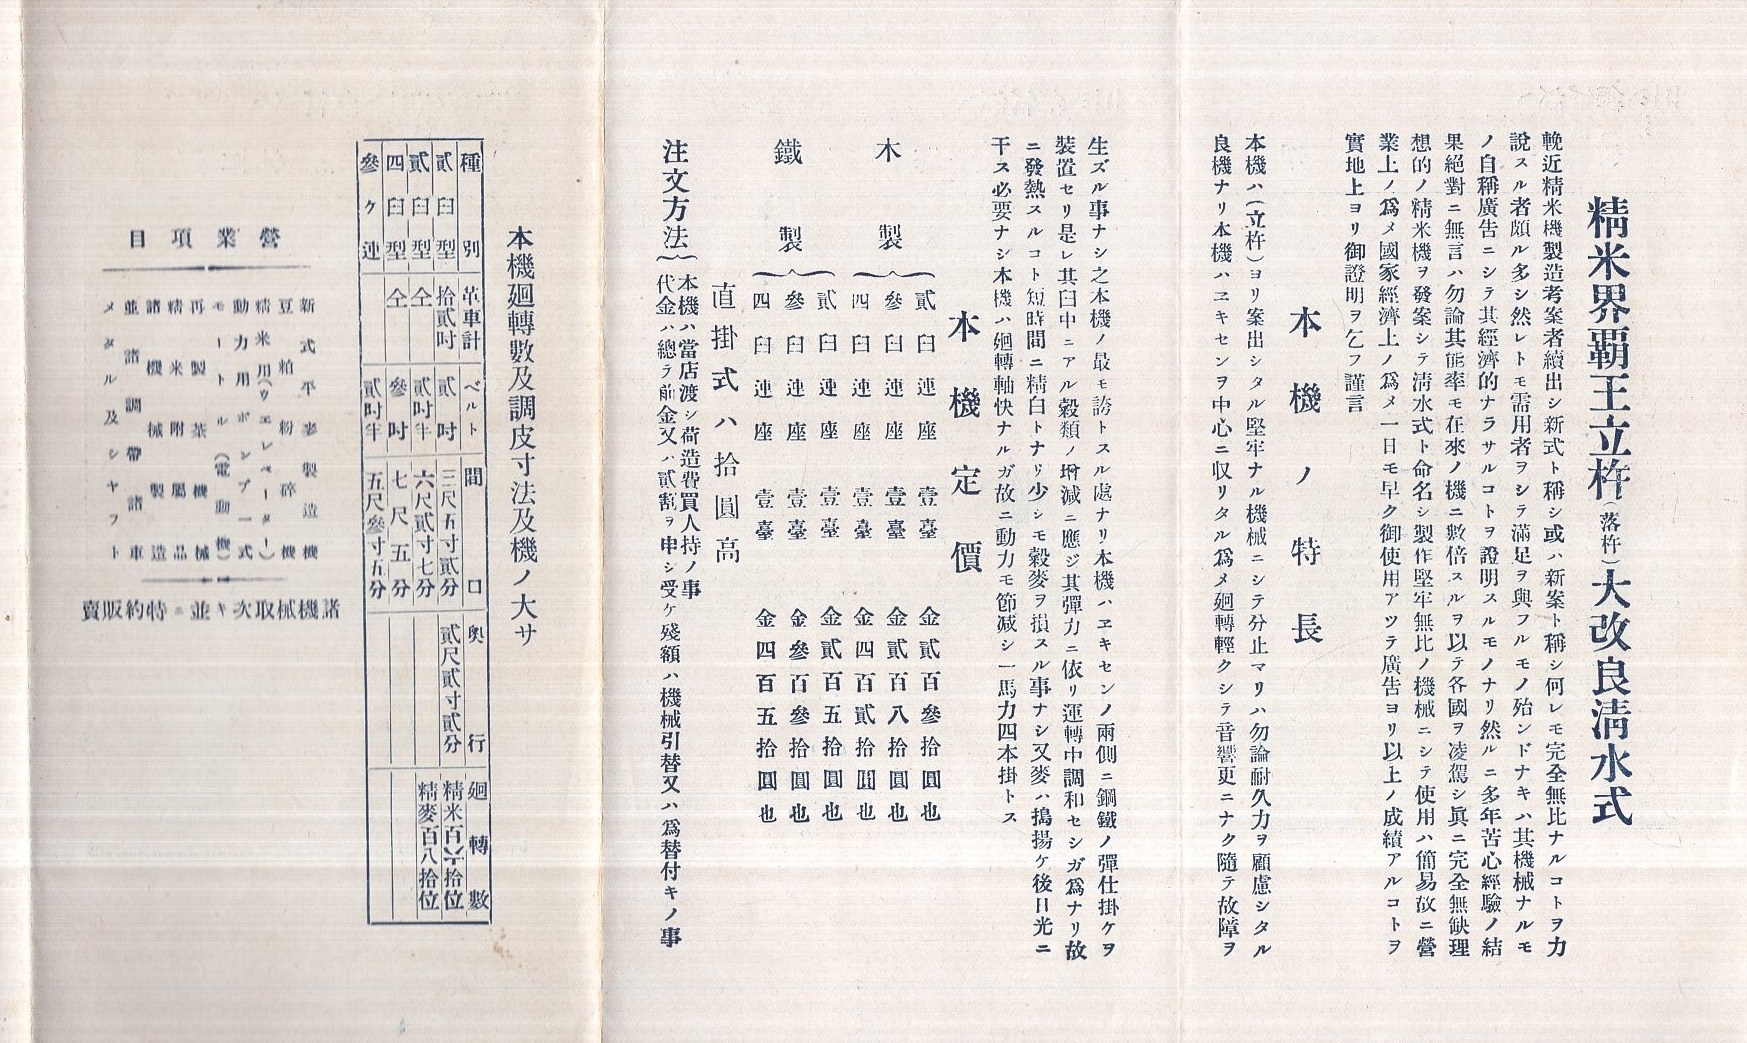 精米界覇王立杵(落杵)大改良淸水式
輓近精米機製造考案者續出シ新式ト稱シ或ハ新案ト稱シ何レモ完全無比ナルコトヲ力
說スル者頗ル多シ然レトモ需用者ヲシテ滿足ヲ與フルモノ殆ンドナキハ其機械ナルモ
ノ自稱廣告ニシテ其經濟的ナラサルコトヲ證明スルモノナリ然ルニ多年苦心經驗ノ結
果絕對ニ無言ハ勿論其能率モ在來ノ機ニ數倍スルヲ以テ各國ヲ凌駕シ眞ニ完全無缺理
想的ノ精米機ヲ發案シテ淸水式ト命名シ製作堅牢無比ノ機械ニシテ使用ハ簡易故ニ營
業上ノ爲メ國家經濟上ノ爲メ一日モ早ク御使用アツテ廣告ヨリ以上ノ成績アルコトヲ
實地上ヨリ御證明ヲ乞フ謹言
本機ノ特長
本機ハ(立杵)ヨリ案出シタル堅牢ナル機械ニシテ分止マリハ勿論耐久力ヲ顧慮シタル
良機ナリ本機ハヱキセンヲ中心ニ収リタル爲メ廻轉輕クシテ音響更ニナク隨テ故障ヲ
生ズル事ナシ之本機ノ最モ誇トスル處ナリ本機ハヱキセンノ兩側ニ鋼鐵ノ彈仕掛ケヲ
裝置セリ是レ其臼中ニアル穀類ノ增減ニ應ジ其彈力ニ依リ運轉中調和セシガ爲ナリ故
ニ發熱スルコト短時間ニ精白トナリ少シモ穀麥ヲ損スル事ナシ又麥ハ搗揚ケ後日光ニ
干ス必要ナシ本機ハ廻轉軸快ナルガ故ニ動力モ節減シ一馬力四本掛トス
本機定價
木製
貳臼連座 壹臺 金貳百參拾圓也
參臼連座 壹臺 金貳百八拾圓也
四臼連座 壹臺 金四百貳拾圓也
鐵製
貳臼連座 壹臺 金貳百五拾圓也
參臼連座 壹臺 金參百參拾圓也
四臼連座 壹臺 金四百五拾圓也
直掛式ハ拾圓高
注文方法
本機ハ當店渡シ荷造費買人持ノ事
代金ハ總テ前金又ハ貳割ヲ申シ受ケ殘額ハ機械引替又ハ爲替付キノ事
本機廻轉數及調皮寸法及機ノ大サ
種別 革車計 ベルト 間口 奥行 廻轉數
貳臼型 拾貳吋 貳吋 三尺五寸貳分 貳尺貳寸貳分 精米百六拾位
貳臼型 仝 貳吋半 六尺貳寸七分 精麥百八拾位
四臼型 仝 參吋 七尺五分
參ク連 貳吋半 五尺參寸五分
營業項目
新式平麥製造機
豆粕粉碎機
精米用(ウエレベーター)
動力用ポンプ一式
モートル(電動機)
再製茶機械
精米附屬品
諸機械製造
並諸調帶諸車
メタル及シヤフト
諸機械取次キ並ニ特約販賣